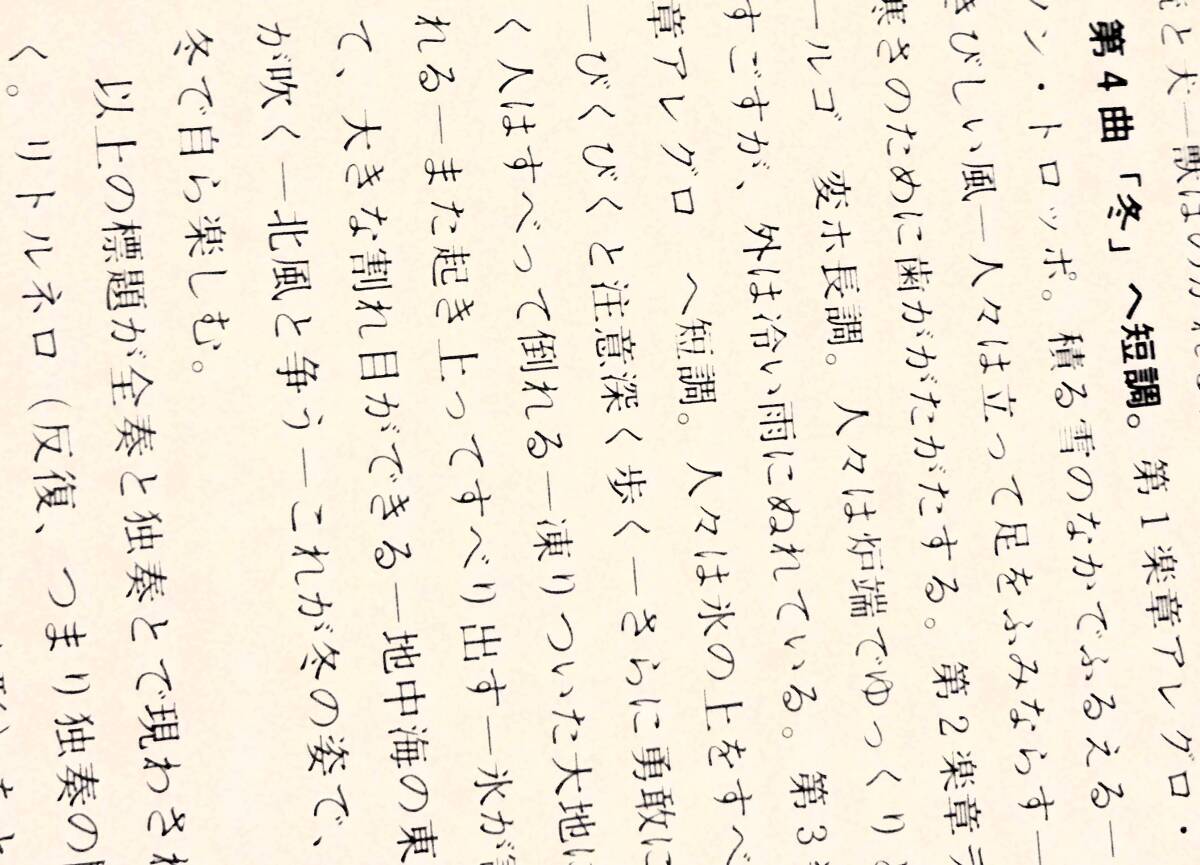 と犬―獣はのがれ
第4曲「冬」ヘ短調。第1楽章アレグロ・
ノン・トロッポ。積る雪のなかでふるえる―
きびしい風―人々は立って足をふみならす―
寒さのために歯ががたがたする。第2楽章ラ
ールゴ 変ホ長調。人々は炉端でゆっくりと
すごすが、外は冷い雨にぬれている。第3
章アレグロ ヘ短調。人々は氷の上をすべ
―びくびくと注意深く歩く―さらに勇敢に
く人はすべって倒れる―凍りついた大地に
れる―また起き上ってすべり出す―氷が
て、大きな割れ目ができる―地中海の東
が吹く―北風と争う―これが冬の姿で、
冬で自ら楽しむ。
以上の標題が全奏と独奏とで現わされ
く。リトルネロ（反復、つまり独奏の